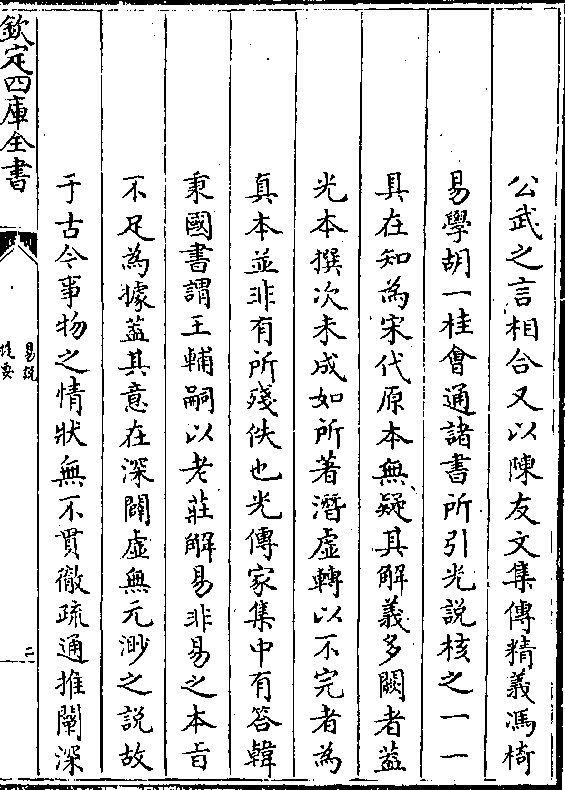 公武之言相合又以陳友文集傳精義馮椅
易學胡一桂會通諸書所引光説核之一一
具在知為宋代原本無疑其解義多闕者葢
光本撰次未成如所著潛虛轉以不完者為
真本並非有所殘佚也光傳家集中有答韓
秉國書謂王輔嗣以老莊解易非易之本㫖
不足為據葢其意在深闢虛無元渺之説故
于古今事物之情狀無不貫徹疏通推闡深
欽定四庫全書
易説
提要
二